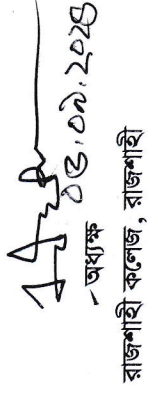 ০৪.০৯.২০২৪
অধ্যক্ষ
রাজশাহী কলেজ, রাজশাহী